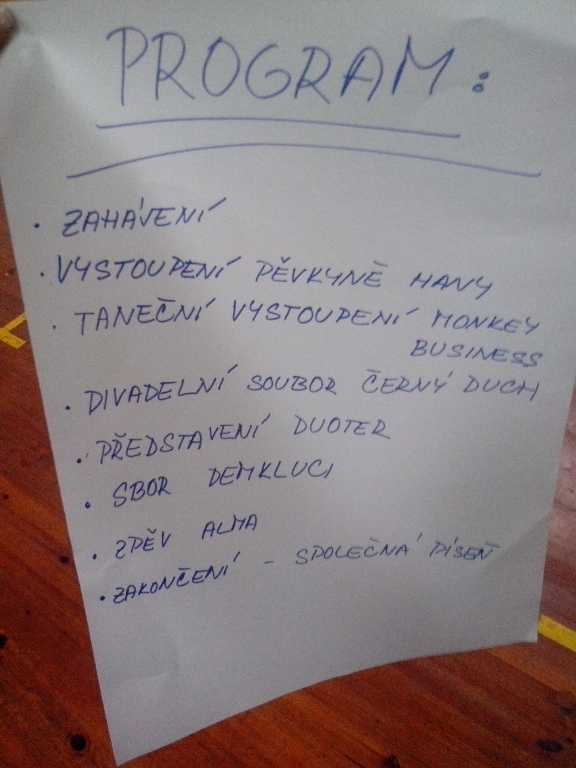 PROGRAM:
• ZAHÁVENÍ
• VYSTOUPENÍ PĚVKYNĚ HANY
• TANEČNÍ VYSTOUPENÍ MONKEY
BUSINESS
• DIVADELNÍ SOUBOR ČERNÝ DUCH
• PŘEDSTAVENÍ DUOTER
• SBOR DEMKLUCI
• ZPĚV ALMA
• ZAKONČENÍ - SPOLEČNÁ PÍSEŇ